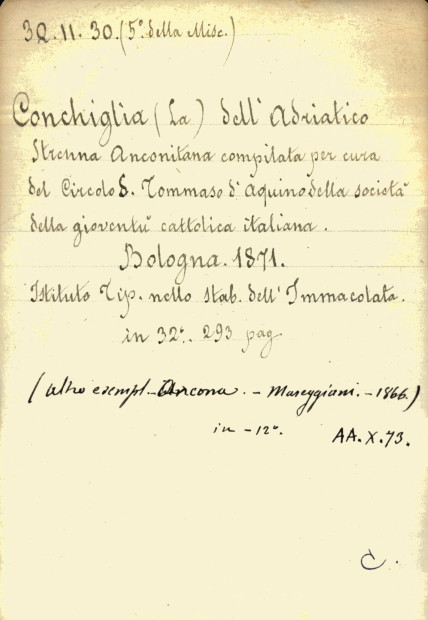 32.11.30. (5º della Misc.)
Conchiglia (La) dell'Adriatico
Strenna Anconitana compilata per cura
del Circolo S. Tommaso d'Aquino della società
della gioventù cattolica italiana.
Bologna. 1871.
Istituto Tip. nello stab. dell'Immacolata.
in 32º. 293 pag
(altro esempl. - Ancona. - Mareggiani. - 1866.)
in - 12º. AA.X.73.
C.